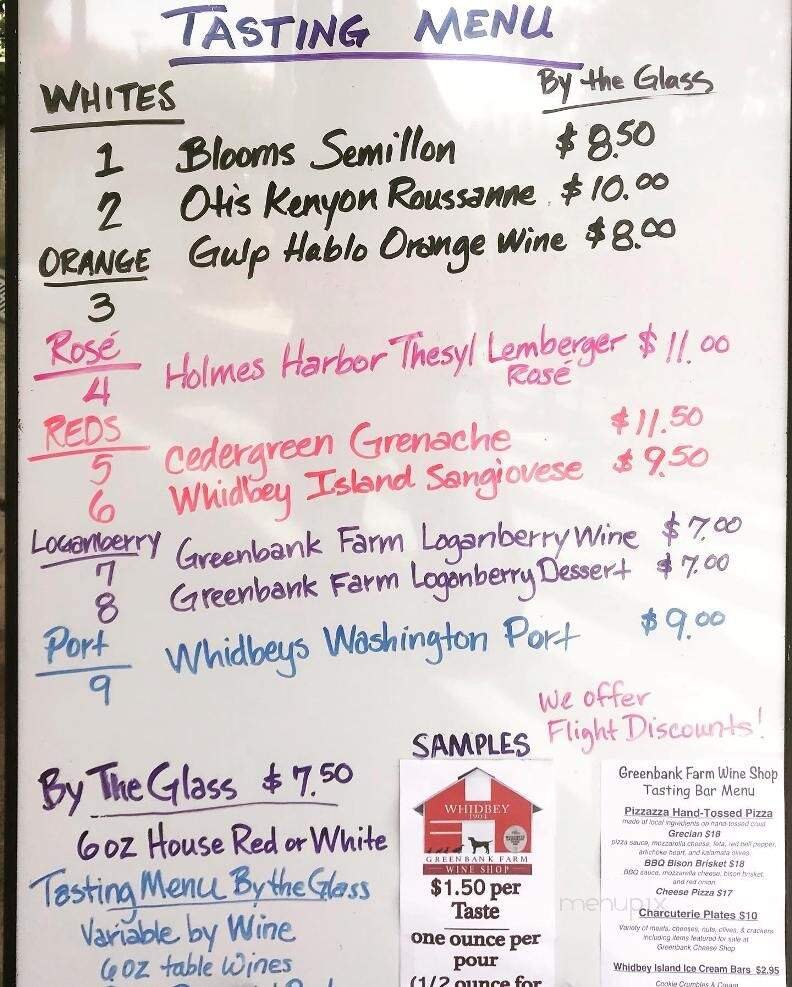 TASTING MENU
WHITES By the Glass
1 Blooms Semillon $8.50
2 Otis Kenyon Roussanne $10.00
ORANGE Gulp Hablo Orange Wine $8.00
3
Rosé
4 Holmes Harbor Thesyl Lemberger $11.00
Rosé
REDS
5 Cedergreen Grenache $11.50
6 Whidbey Island Sangiovese $9.50
Loganberry
7 Greenbank Farm Loganberry Wine $7.00
8 Greenbank Farm Loganberry Dessert $7.00
Port
9 Whidbeys Washington Port $9.00
We offer
Flight Discounts!
By The Glass $7.50
6 oz House Red or White
Tasting Menu By the Glass
Variable by Wine
6 oz table Wines
SAMPLES
WHIDBEY
1904
GREENBANK FARM
WINE SHOP
$1.50 per
Taste
one ounce per
pour
(1/2 ounce for
Greenbank Farm Wine Shop
Tasting Bar Menu
Pizzazza Hand-Tossed Pizza
made of local ingredients on hand-tossed crust
Grecian $18
pizza sauce, mozzarella cheese, feta, red bell pepper,
artichoke heart, and kalamata olives
BBQ Bison Brisket $18
BBQ sauce, mozzarella cheese, bison brisket,
and red onion
Cheese Pizza $17
Charcuterie Plates $10
Variety of meats, cheeses, nuts, olives, & crackers
including items featured for sale at
Greenbank Cheese Shop
Whidbey Island Ice Cream Bars $2.95
Cookie Crumbles & Cream
menupix